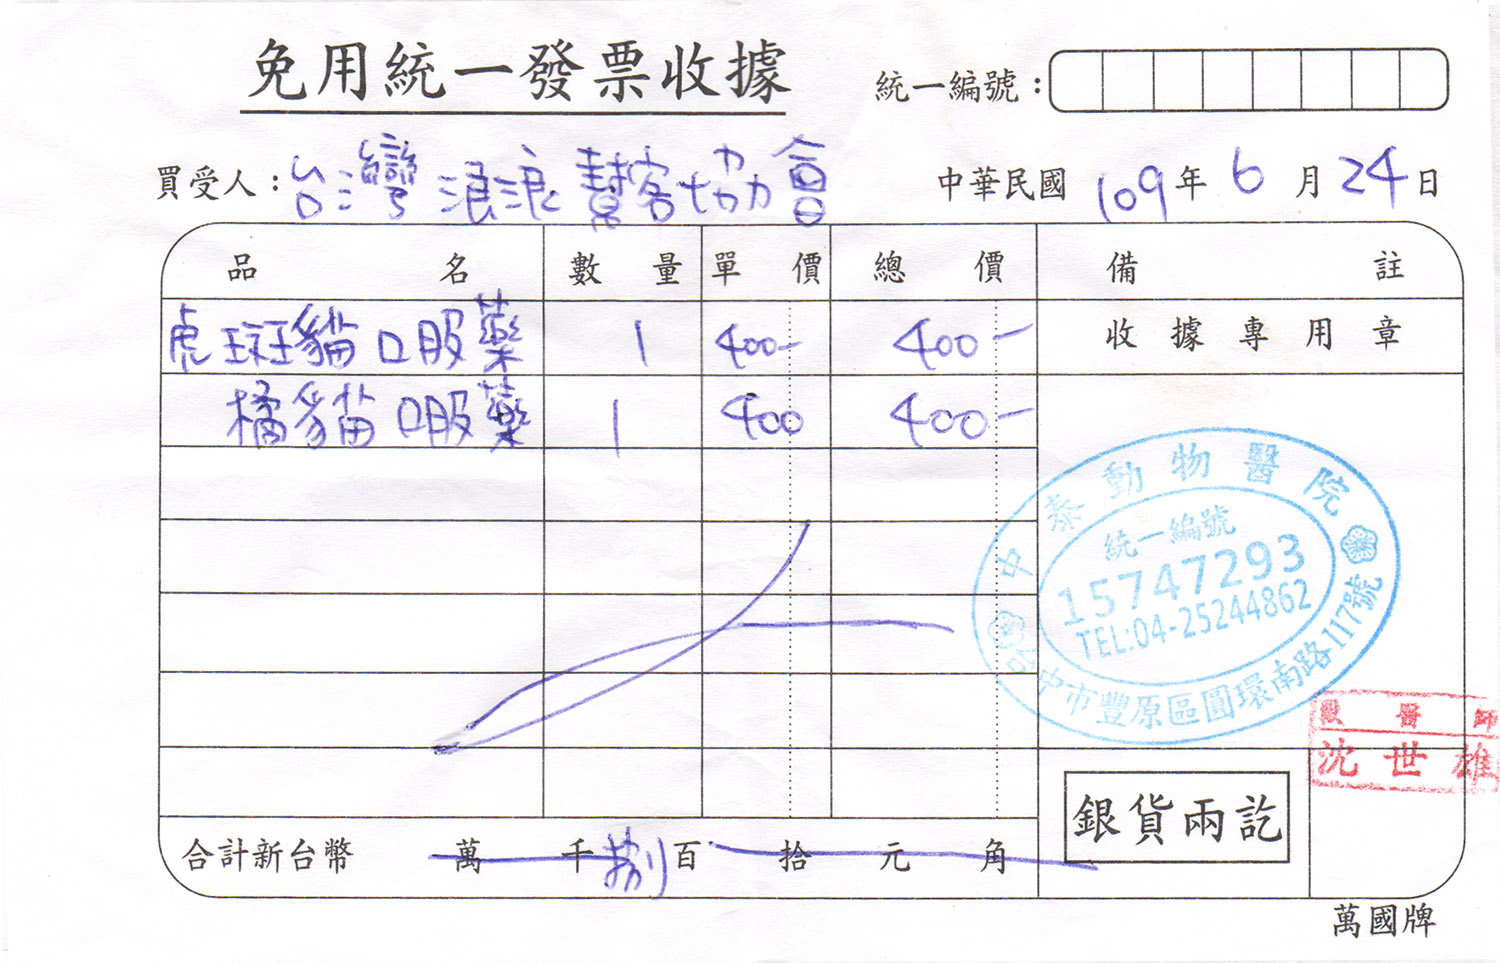 免用統一發票收據
統一編號：
買受人：台灣浪浪幫客協會
中華民國 109 年 6 月 24 日
品名 數量 單價 總價 備註
虎斑貓口服藥 1 400- 400-
收據專用章
橘貓口服藥 1 400 400-
中泰動物醫院
統一編號
15747293
TEL:04-25244862
台中市豐原區圓環南路117號
獸醫師
沈世雄
銀貨兩訖
合計新台幣 萬 千 捌 百 拾 元 角
萬國牌